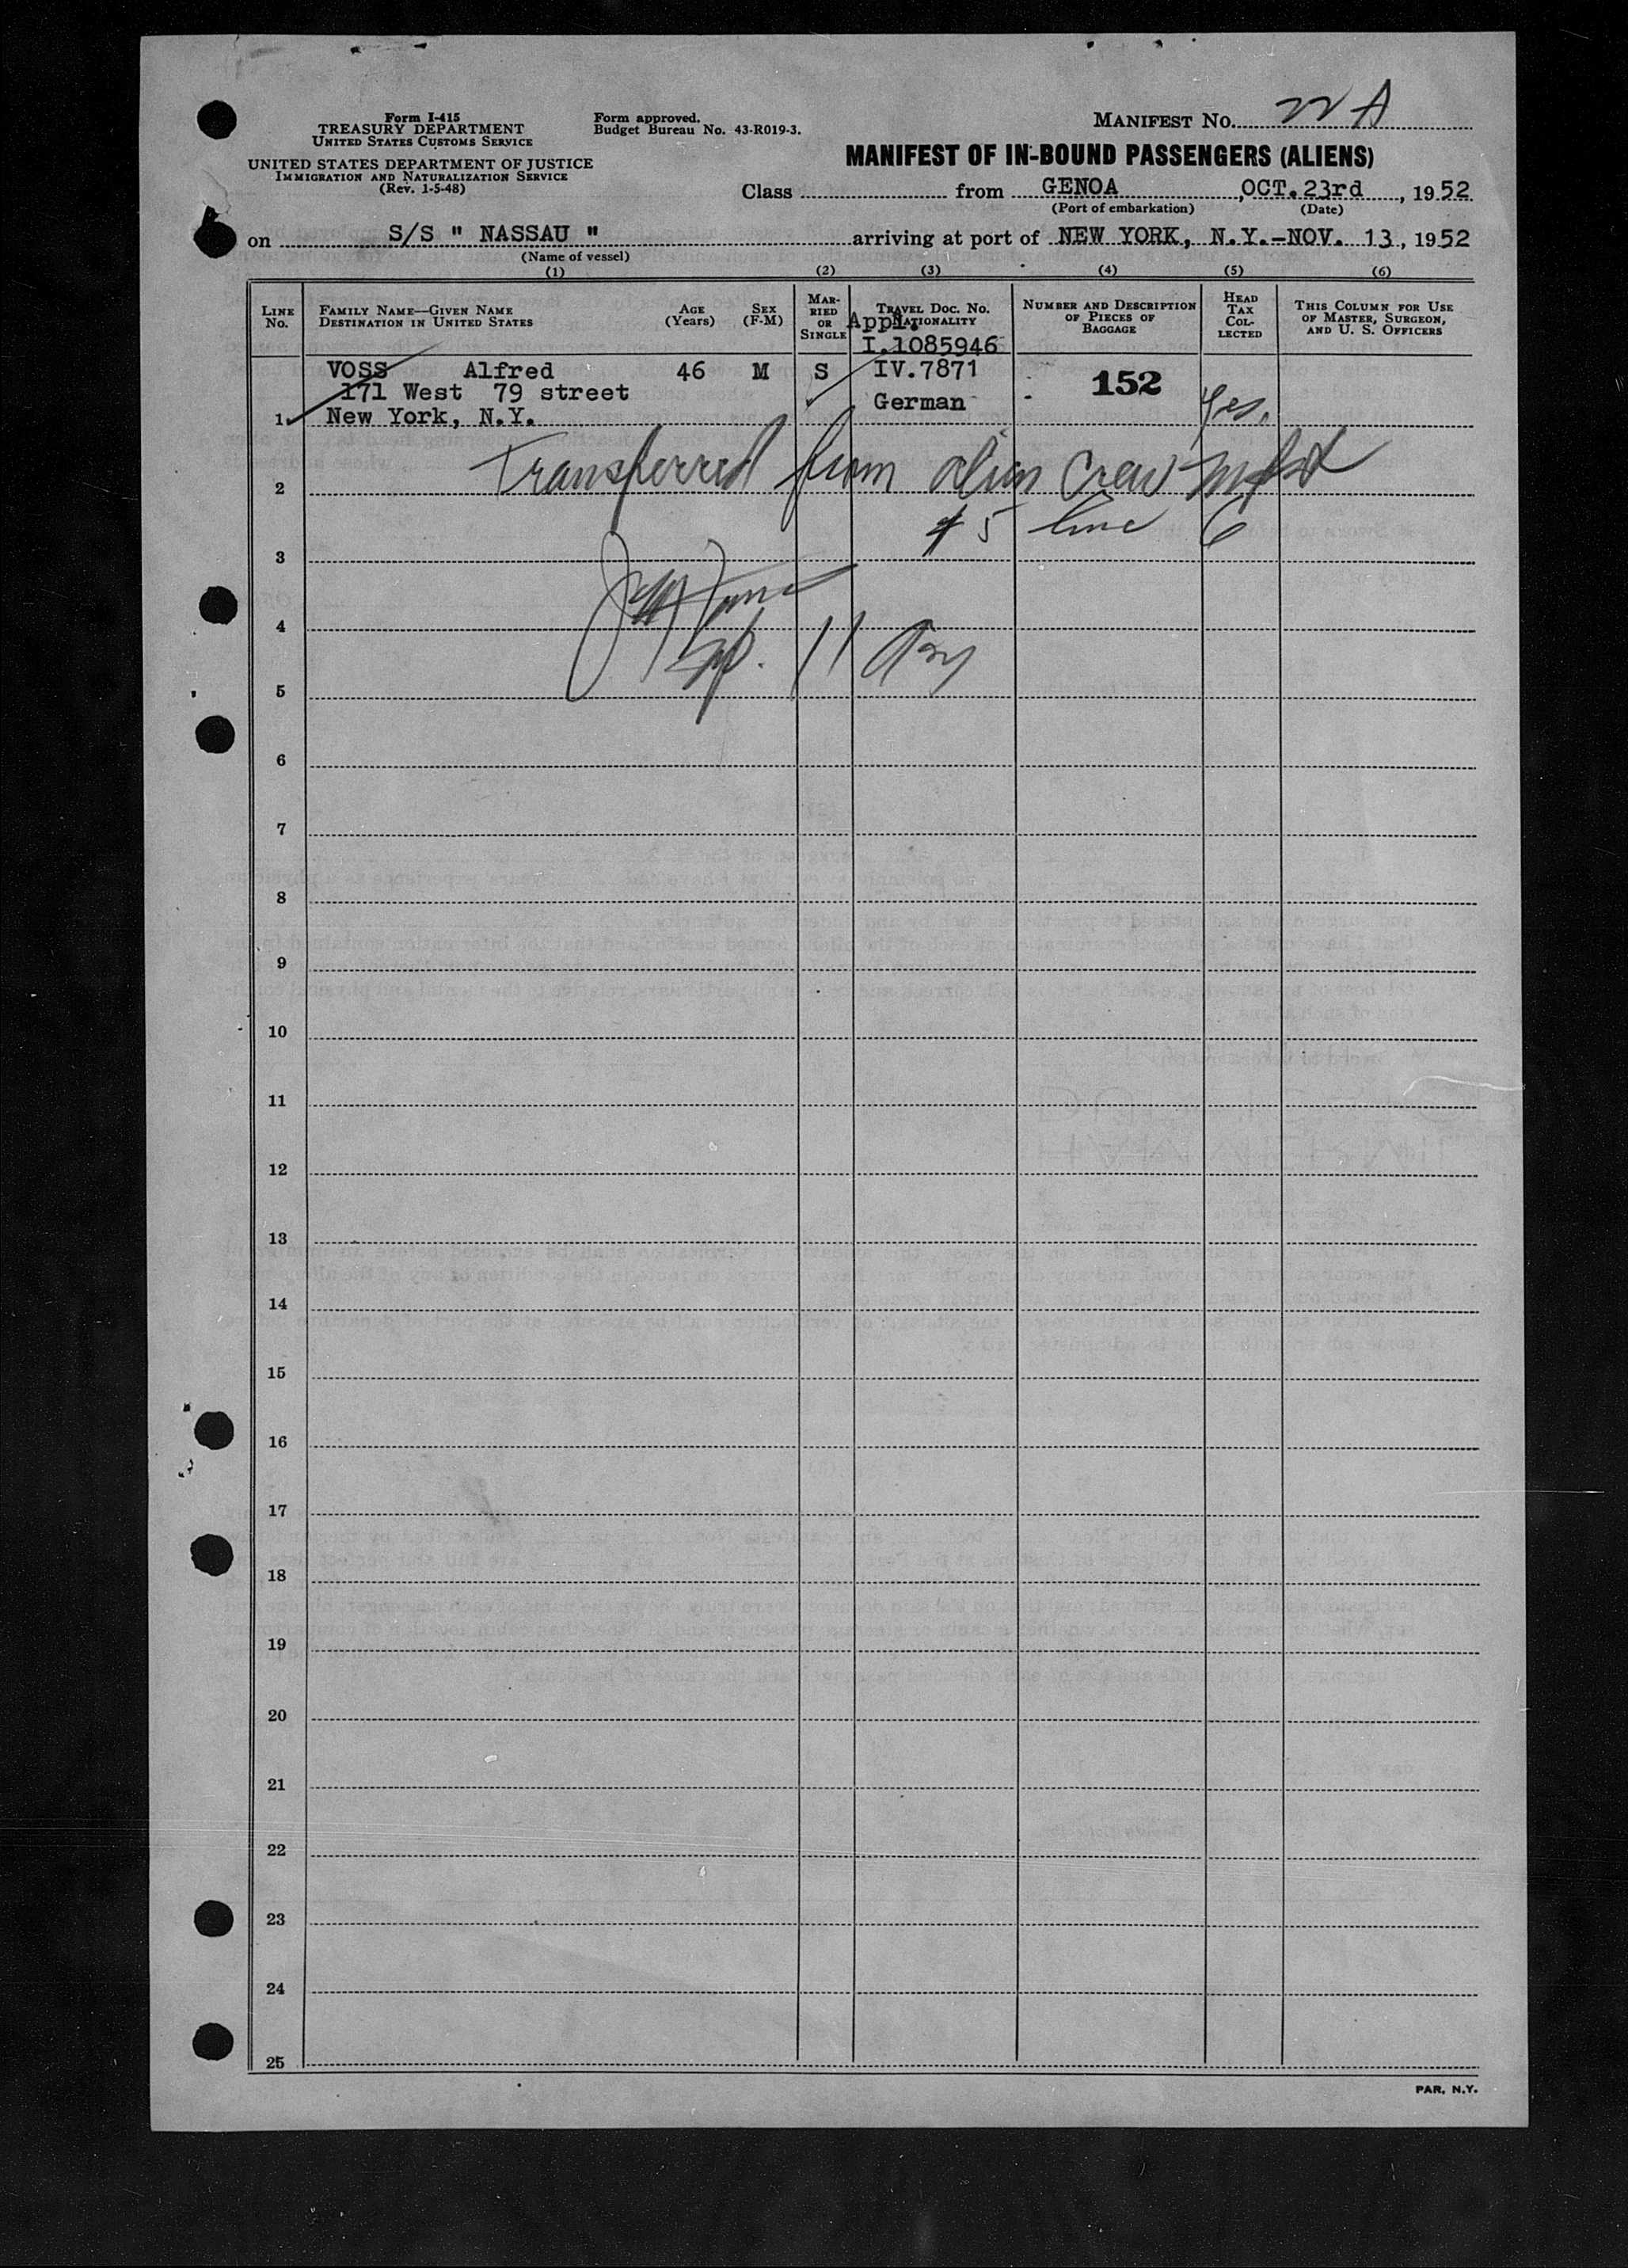 Form I-415
TREASURY DEPARTMENT
UNITED STATES CUSTOMS SERVICE
UNITED STATES DEPARTMENT OF JUSTICE
IMMIGRATION AND NATURALIZATION SERVICE
(Rev. 1-5-48)
Form approved.
Budget Bureau No. 43-R019-3.
MANIFEST NO. 22 A
MANIFEST OF IN-BOUND PASSENGERS (ALIENS)
Class from GENOA, OCT. 23rd, 1952
(Port of embarkation) (Date)
on S/S " NASSAU " arriving at port of NEW YORK, N.Y.-NOV. 13, 1952
(Name of vessel)
(1) (2) (3) (4) (5) (6)
LINE NO.
FAMILY NAME—GIVEN NAME
DESTINATION IN UNITED STATES
AGE
(YEARS)
SEX
(F-M)
MAR-
RIED
OR
SINGLE
TRAVEL DOC. NO.
NATIONALITY
NUMBER AND DESCRIPTION
OF PIECES OF
BAGGAGE
HEAD
TAX
COL-
LECTED
THIS COLUMN FOR USE
OF MASTER, SURGEON,
AND U. S. OFFICERS
Appl.
I.1085946
VOSS Alfred 46 M S IV.7871
171 West 79 street 152
German
1 New York, N.Y. Yes.
Transferred from alien crew mfst
2
# 5 line 6
3
4
5
6
7
8
9
10
11
12
13
14
15
16
17
18
19
20
21
22
23
24
25
PAR, N.Y.